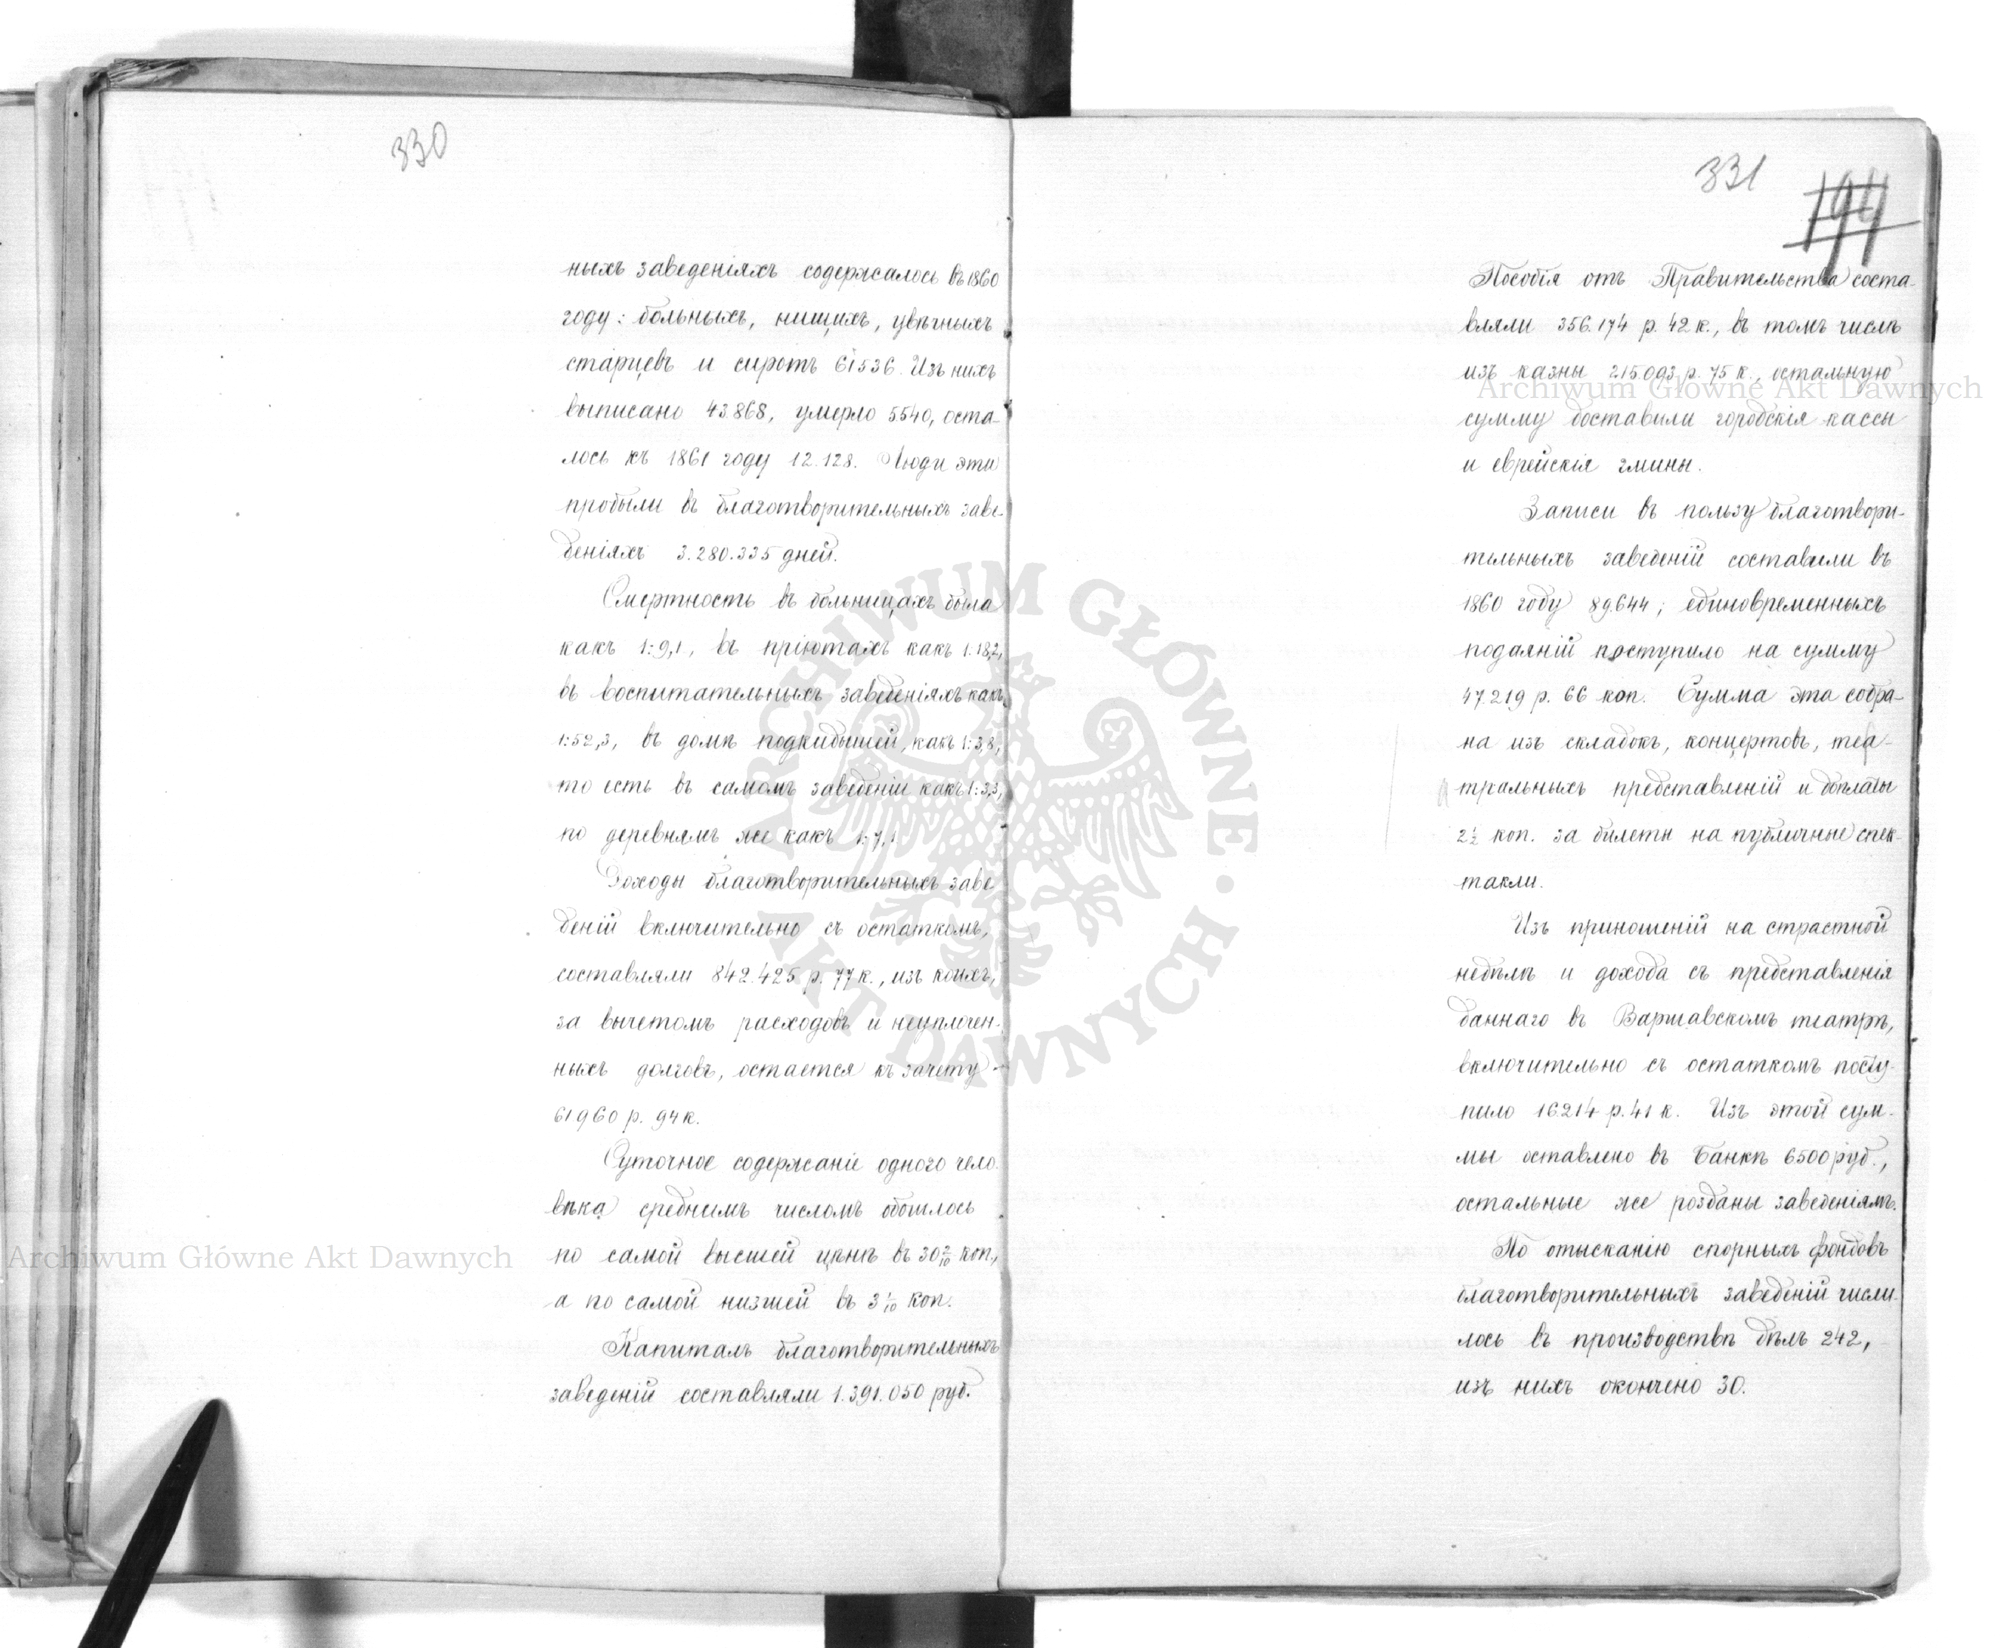 330
ныхъ заведеніяхъ содержалось въ 1860
году: больныхъ, нищихъ, увѣчныхъ
старцевъ и сиротъ 61536. Изъ нихъ
выписано 43868, умерло 5540, оста-
лось къ 1861 году 12.128. Люди эти
пробыли въ благотворительныхъ заве-
деніяхъ 3.280.335 дней.
Смертность въ больницахъ была
какъ 1:9,1, въ пріютахъ какъ 1:18,2,
въ воспитательныхъ заведеніяхъ какъ
1:52,3, въ домѣ подкидышей, какъ 1:3,8,
то есть въ самомъ заведеніи какъ 1:3,3,
по деревнямъ же какъ 1:7,1
Доходы благотворительныхъ заве
деній включительно съ остаткомъ,
составляли 842.425 р. 77 к., изъ коихъ,
за вычетомъ расходовъ и неуплочен-
ныхъ долговъ, остается къ зачету
61960 р. 94 к.
Суточное содержаніе одного чело
вѣка среднимъ числомъ обошлось
по самой высшей цѣнѣ въ 30 2/10 коп.,
а по самой низшей въ 3 1/10 коп.
Капиталъ благотворительныхъ
заведеній составляли 1.391.050 руб.
331
194
Пособія отъ Правительства соста-
вляли 356.174 р. 42 к., въ томъ числѣ
изъ казны 215093 р. 75 к., остальную
сумму доставили городскія кассы
и еврейскія гмины.
Записи въ пользу благотвори-
тельныхъ заведеній составили въ
1860 году 89.644; единовременныхъ
подаяній поступило на сумму
47.219 р. 66 коп. Сумма эта собра-
на изъ складокъ, концертовъ, теа-
тральныхъ представленій и доплаты
2½ коп. за билеты на публичные спек-
такли.
Изъ приношеній на страстной
недѣлѣ и дохода съ представленія
даннаго въ Варшавскомъ театрѣ,
включительно съ остаткомъ посту
пило 16214 р. 41 к. Изъ этой сум-
мы оставлено въ Банкѣ 6500 руб.,
остальные же розданы заведеніямъ.
По отысканію спорныхъ фондовъ
благотворительныхъ заведеній числи-
лось въ производствѣ дѣлъ 242,
изъ нихъ окончено 30.
Archiwum Główne Akt Dawnych
Archiwum Główne Akt Dawnych
ARCHIWUM GŁÓWNE AKT DAWNYCH